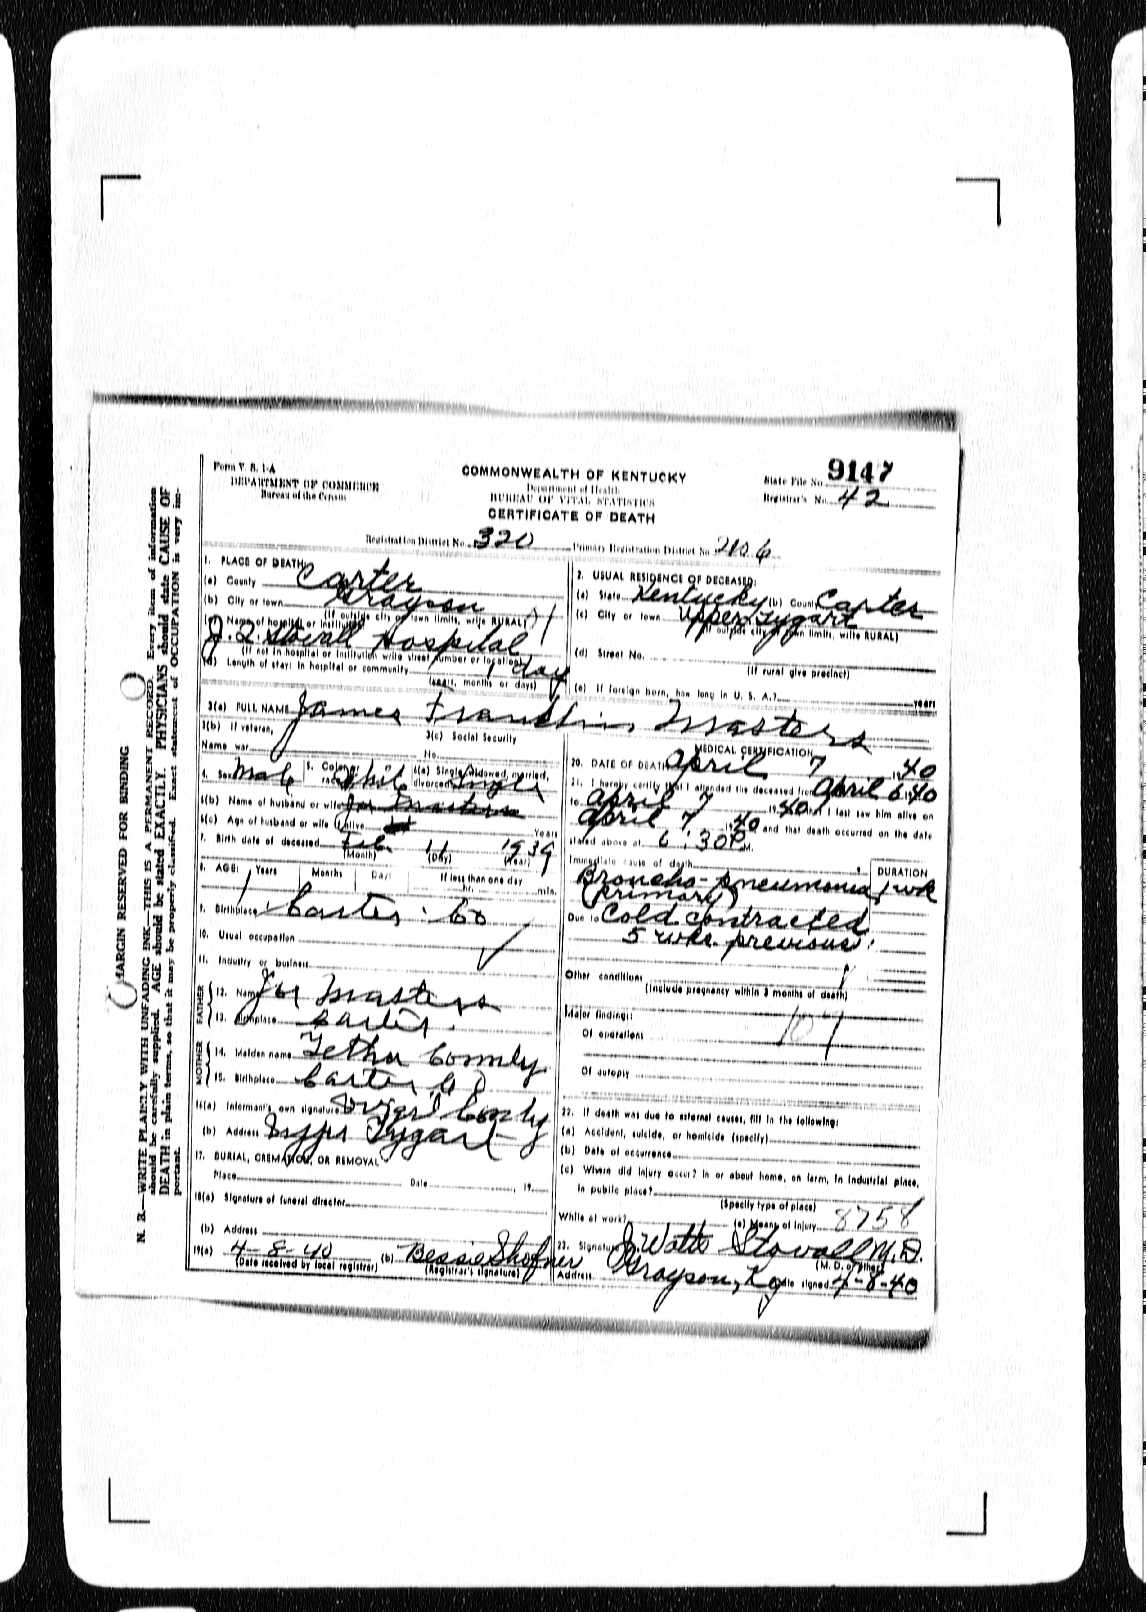 Form V. S. 1-A
DEPARTMENT OF COMMERCE
Bureau of the Census
COMMONWEALTH OF KENTUCKY
Department of Health
BUREAU OF VITAL STATISTICS
CERTIFICATE OF DEATH
State File No. 9147
Registrar's No. 42
Registration District No. 320
Primary Registration District No.
1. PLACE OF DEATH:
(a) County Carter
(b) City or town Grayson
(If outside city or town limits, write RURAL)
(c) Name of hospital or institution
J. Q. Stovall Hospital
(If not in hospital or institution write street number or location)
(d) Length of stay: In hospital or community 1 day
(years, months or days)
2. USUAL RESIDENCE OF DECEASED:
(a) State Kentucky (b) County Carter
(c) City or town Upper Tygart
(If outside city or town limits, write RURAL)
(d) Street No.
(If rural give precinct)
(e) If foreign born, how long in U. S. A.? years
3(a) FULL NAME James Franklin Masters
3(b) If veteran,
Name war
3(c) Social Security
No.
4. Sex Male 5. Color or race White 6(a) Single, widowed, married, divorced Single
6(b) Name of husband or wife Joe Masters
6(c) Age of husband or wife if alive Years
7. Birth date of deceased Feb. 11 1939
(Month) (Day) (Year)
8. AGE: Years Months Days If less than one day
1 hr. min.
9. Birthplace Carter Co
10. Usual occupation
11. Industry or business
FATHER
12. Name Joe Masters
13. Birthplace Carter
MOTHER
14. Maiden name Letha Connly
15. Birthplace Carter Co
16(a) Informant's own signature
(b) Address Upper Tygart
17. BURIAL, CREMATION, OR REMOVAL
Place Date , 19
18(a) Signature of funeral director
(b) Address
19(a) 4-8-40 (b) Bessie Shofner
(Date received by local registrar) (Registrar's signature)
MEDICAL CERTIFICATION
20. DATE OF DEATH April 7 , 1940
21. I hereby certify that I attended the deceased from April 6, 1940
to April 7 1940 that I last saw him alive on
April 7 1940 and that death occurred on the date
stated above at 6:30 P.M.
Immediate cause of death DURATION
Broncho-pneumonia 1 wk
(primary)
Due to Cold contracted
5 wks. previous
Other conditions
(Include pregnancy within 3 months of death)
Major findings:
107
Of operations
Of autopsy
22. If death was due to external causes, fill in the following:
(a) Accident, suicide, or homicide (specify)
(b) Date of occurrence
(c) Where did injury occur? In or about home, on farm, in industrial place,
in public place?
(Specify type of place)
While at work? (e) Means of injury 8758
23. Signature J. Watts Stovall M.D.
(M. D. or other)
Address Grayson, Ky Date signed 4-8-40
MARGIN RESERVED FOR BINDING
N. B.—WRITE PLAINLY WITH UNFADING INK—THIS IS A PERMANENT RECORD. Every item of information
should be carefully supplied. AGE should be stated EXACTLY. PHYSICIANS should state CAUSE OF
DEATH in plain terms, so that it may be properly classified. Exact statement of OCCUPATION is very im-
portant.